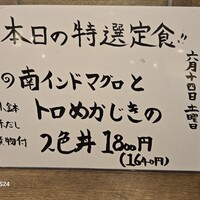 本日の特選定食!!
六月十四日土曜日
の南インドマグロと
トロめかじきの
2色丼 1800円
(1640円)
小鉢
赤だし
漬物付